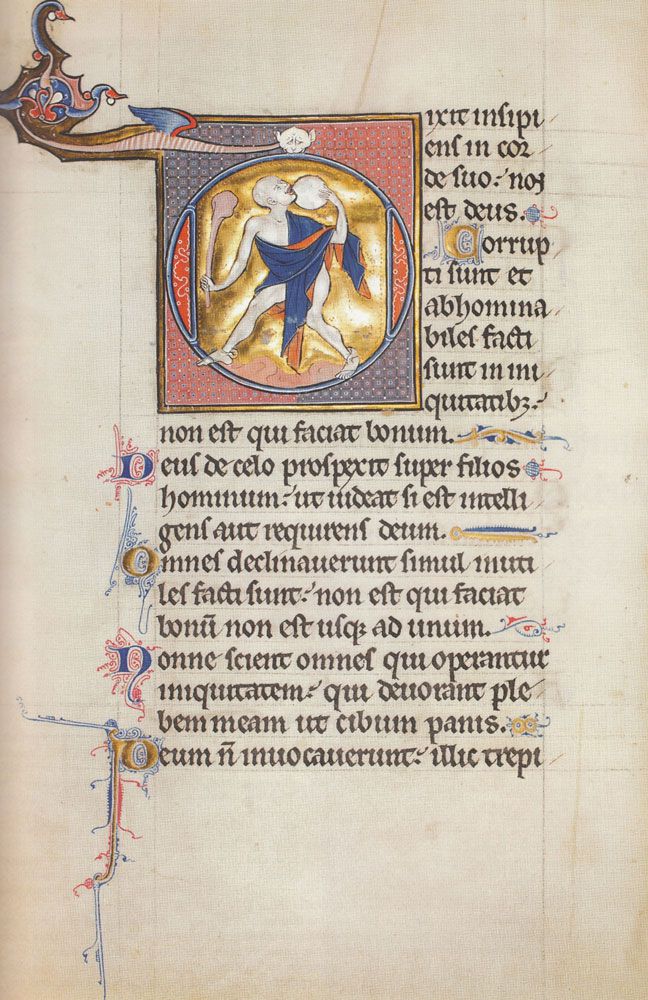 Dixit insipi
ens in cor
de suo: non
est deus.
Corrup
ti sunt et
abhomina
biles facti
sunt in ini
quitatibꝫ:
non est qui faciat bonum.
Deus de celo prospexit super filios
hominum: ut uideat si est intelli
gens aut requirens deum.
Omnes declinauerunt simul inuti
les facti sunt: non est qui faciat
bonū non est usqꝫ ad unum.
Nonne scient omnes qui operantur
iniquitatem: qui deuorant ple
bem meam ut cibum panis.
Deum n̄ inuocauerunt: illic trepi